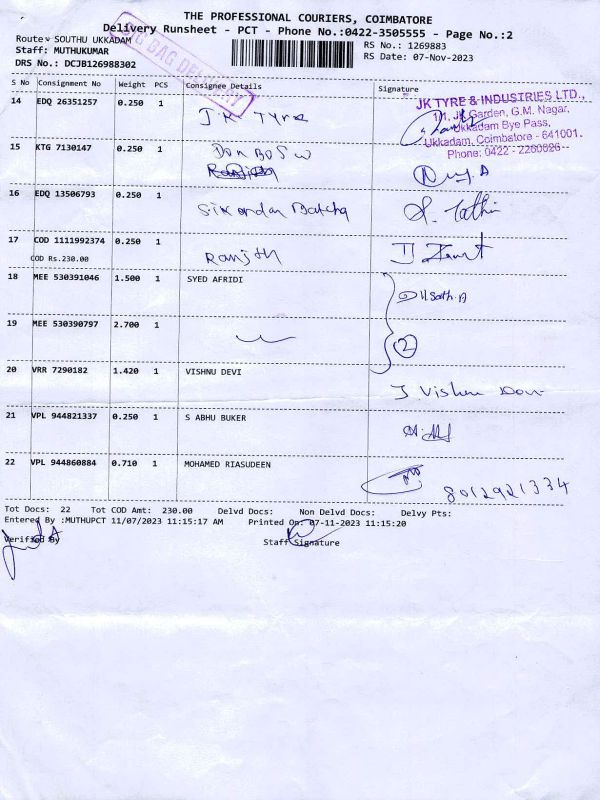 THE PROFESSIONAL COURIERS, COIMBATORE
Delivery Runsheet - PCT - Phone No.:0422-3505555 - Page No.:2
Route: SOUTHU UKKADAM
RS No.: 1269883
Staff: MUTHUKUMAR
RS Date: 07-Nov-2023
DRS No.: DCJB126988302
BIG BAG DELIVERY
S No Consignment No Weight PCS Consignee Details Signature
14 EDQ 26351257 0.250 1 JK Tyre
JK TYRE & INDUSTRIES LTD.,
1/1, JK Garden, G.M. Nagar,
Ukkadam Bye Pass,
Ukkadam, Coimbatore - 641001.
Phone: 0422 - 2260626
15 KTG 7130147 0.250 1 Don Bosco
Ranjith
16 EDQ 13506793 0.250 1 Sikandar Batcha
17 COD 1111992374 0.250 1 Ranjith
COD Rs.230.00
18 MEE 530391046 1.500 1 SYED AFRIDI
19 MEE 530390797 2.700 1
2
20 VRR 7290182 1.420 1 VISHNU DEVI J Vishnu Devi
21 VPL 944821337 0.250 1 S ABHU BUKER
22 VPL 944860884 0.710 1 MOHAMED RIASUDEEN
8012921334
Tot Docs: 22 Tot COD Amt: 230.00 Delvd Docs: Non Delvd Docs: Delvy Pts:
Entered By :MUTHUPCT 11/07/2023 11:15:17 AM Printed On: 07-11-2023 11:15:20
Verified By Staff Signature